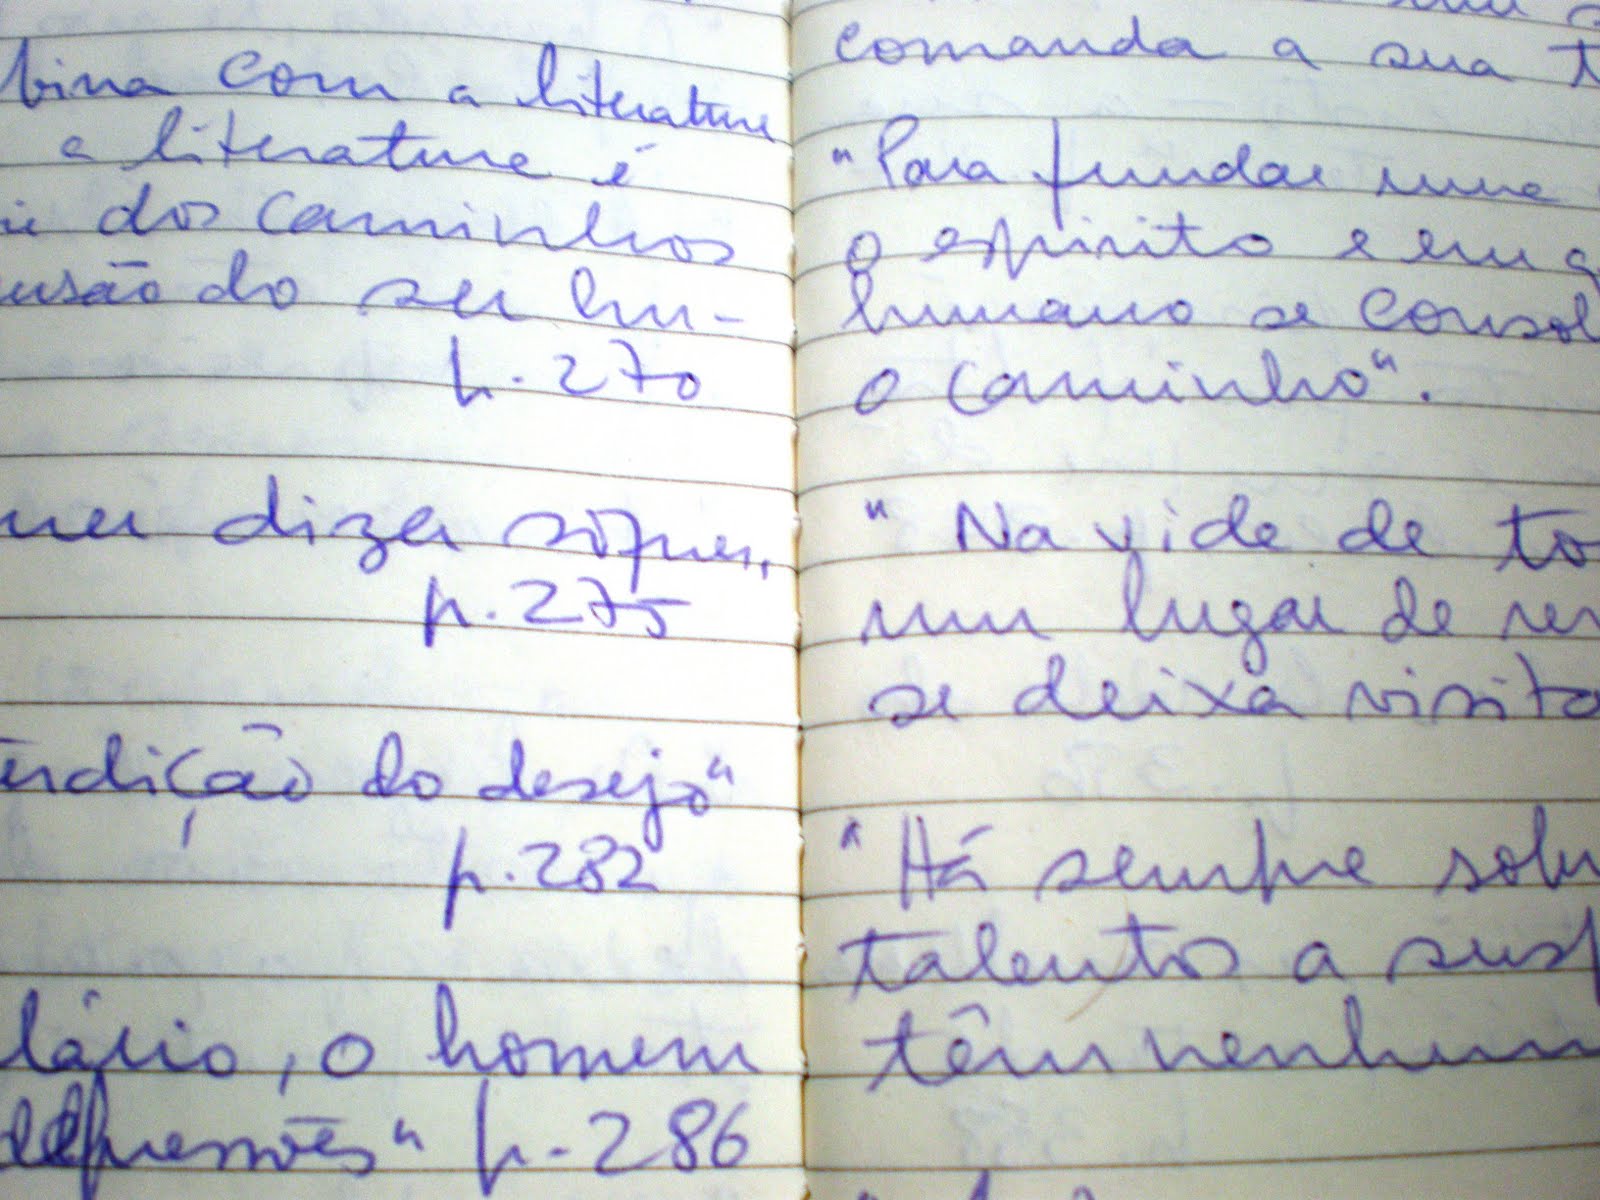 bina com a literature
a literature é
dos caminhos
ensão do ser hu-
p. 270
dizer
p. 275
do desejo"
p. 282
lário, o homem
depressões" p. 286
comanda a sua t
"Para fundar uma
o espirito e em q
humano se consol
o caminho".
"Na vida de to
um lugar de re
se deixa visita
"Há sempre sobr
talentos a susp
têm nenhum